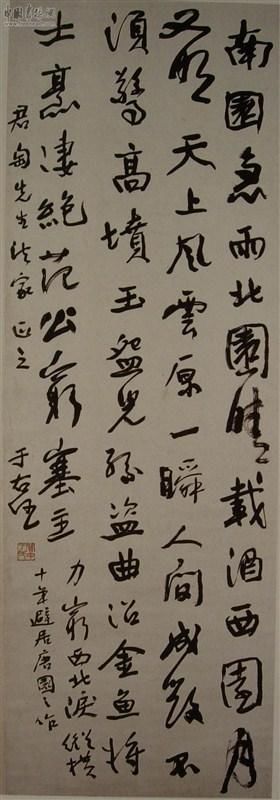 南園急雨北園晴載酒西園月
又明天上風雲原一瞬人間成敗不
須驚高墳玉盌兒孫盜曲沼金魚將
士烹凄絶范公窮塞主
力窮西北淚縱橫
十年避居唐園之作
君匋先生法家正之
于右任